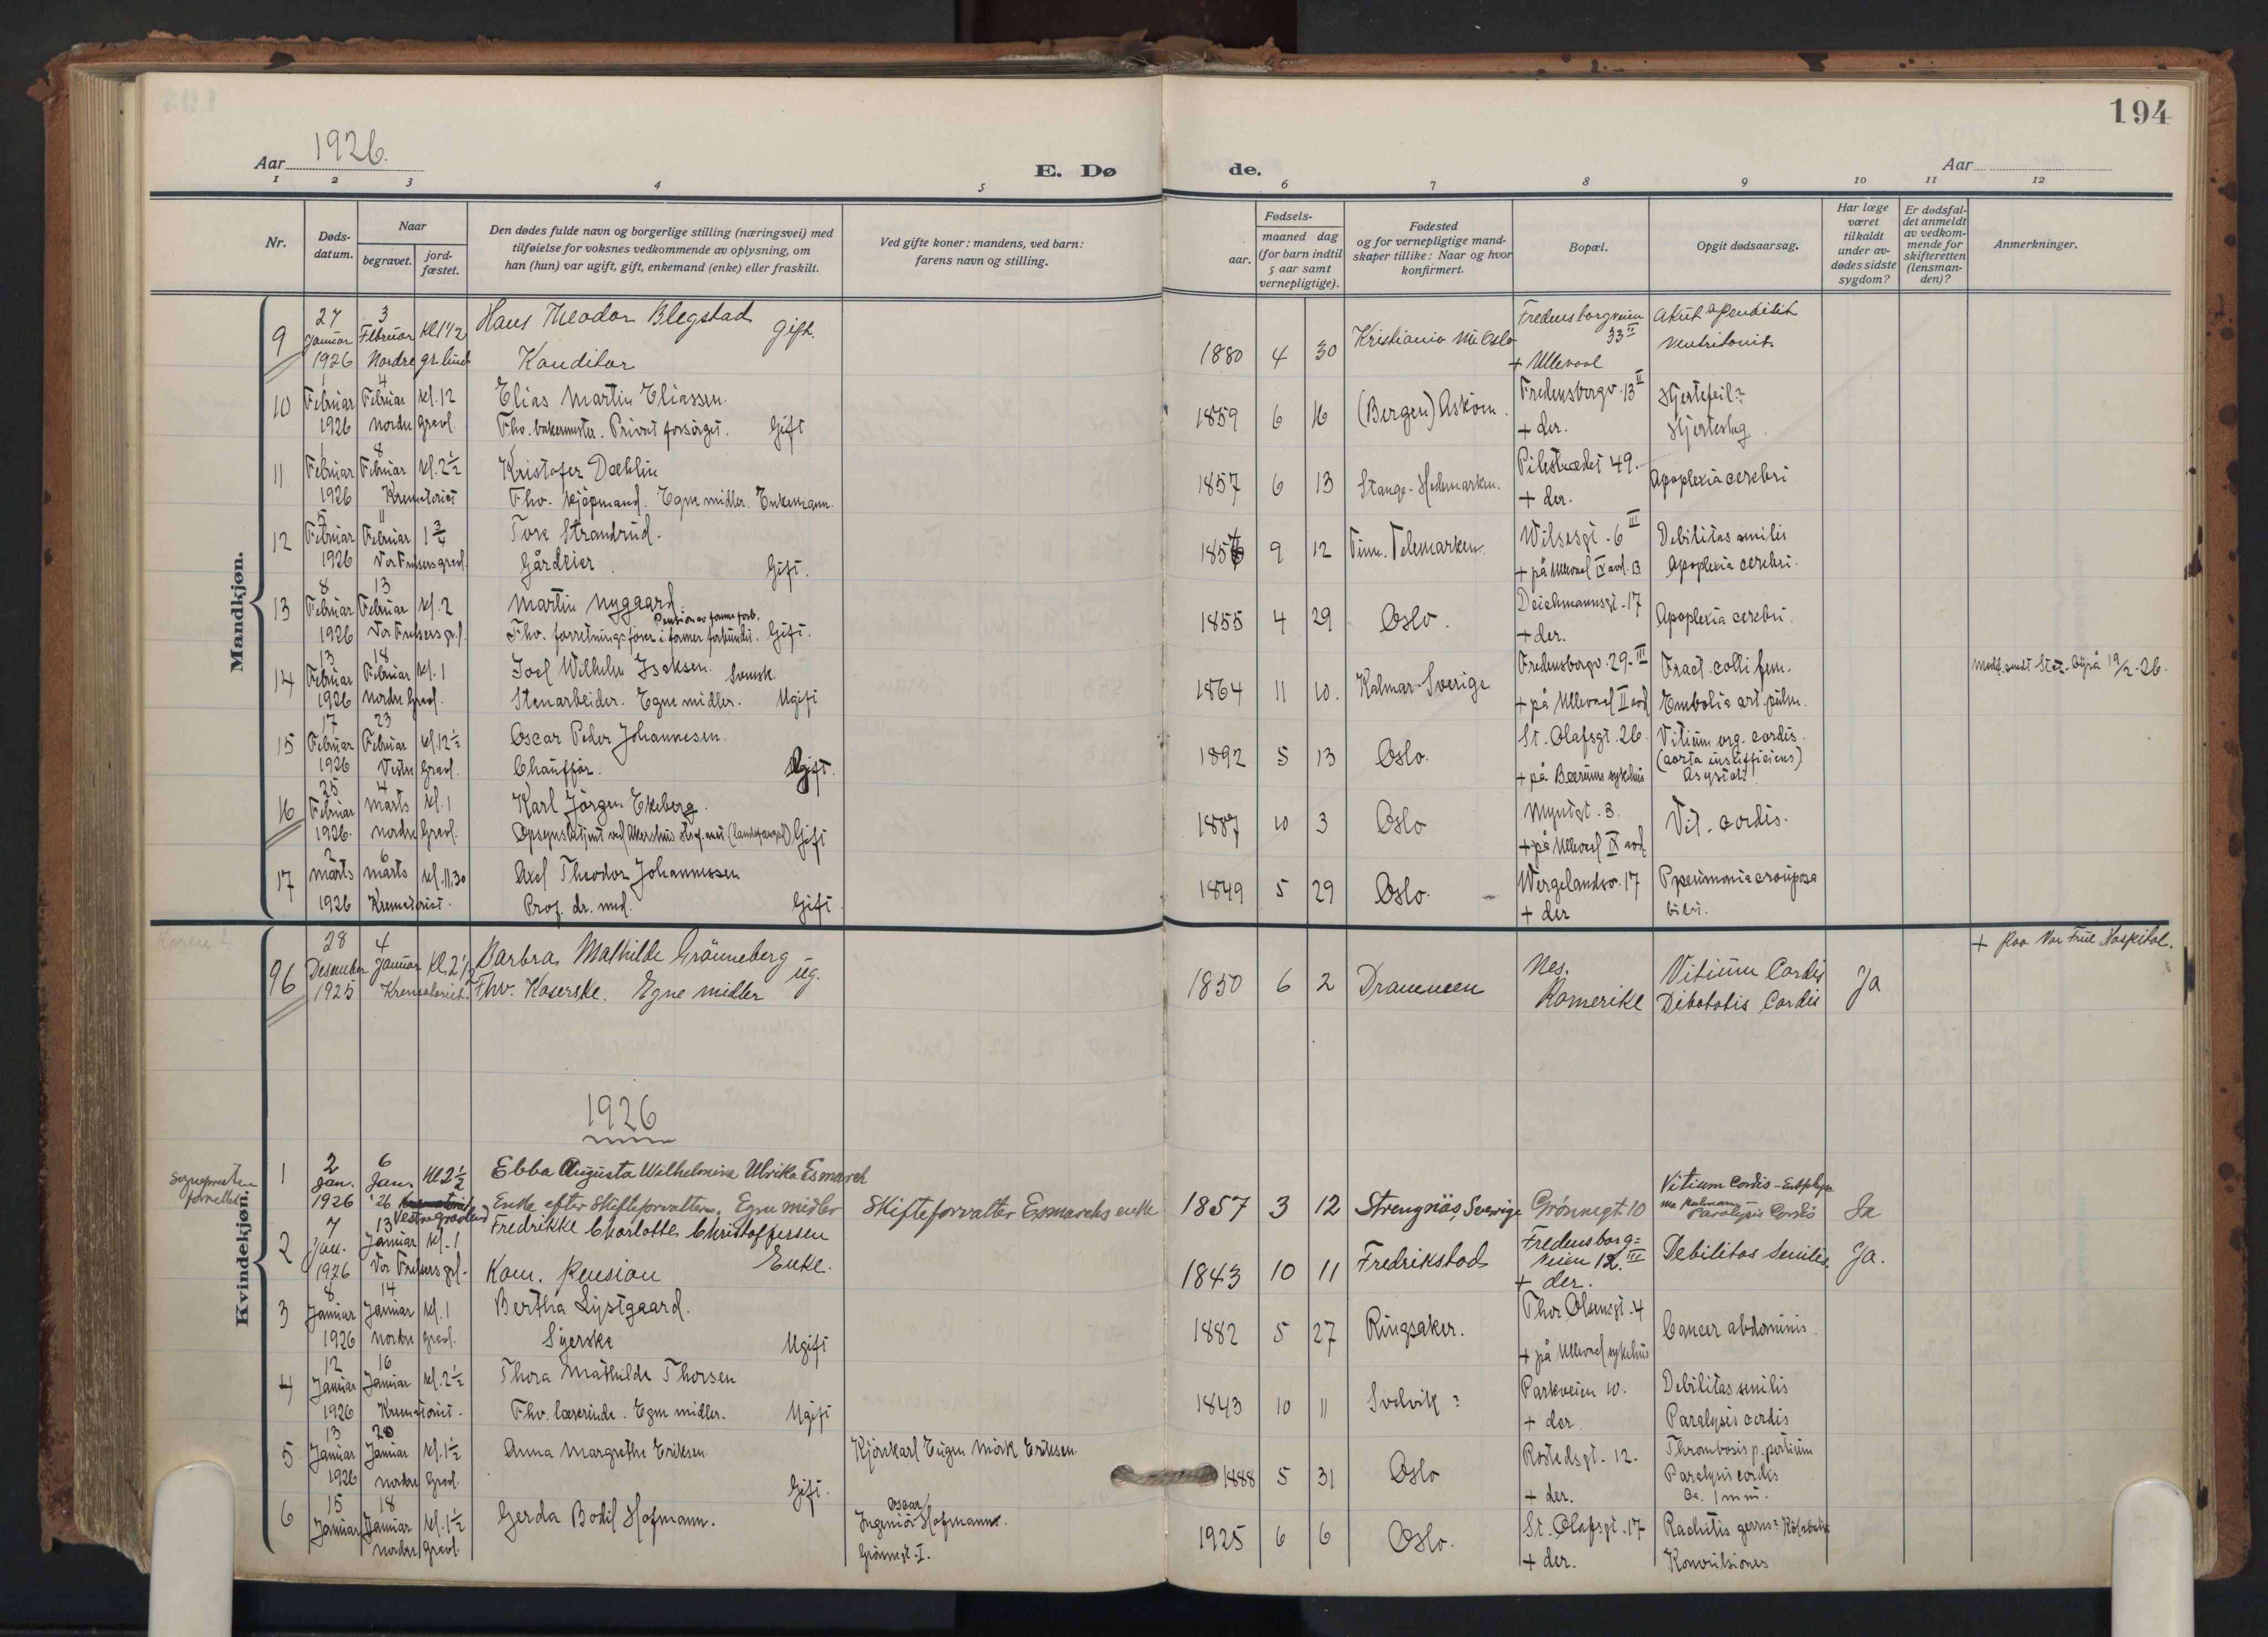 194
Aar 1926.
E. Dø
de.
Aar
1 2 3 4 5 6 7 8 9 10 11 12
Nr.
Døds-
datum.
Naar
begravet.
jord-
fæstet.
Den dødes fulde navn og borgerlige stilling (næringsvei) med
tilføielse for voksnes vedkommende av oplysning, om
han (hun) var ugift, gift, enkemand (enke) eller fraskilt.
Ved gifte koner: mandens, ved barn:
farens navn og stilling.
Fødsels-
aar.
maaned dag
(for barn indtil
5 aar samt
vernepligtige).
Fødested
og for vernepligtige mand-
skaper tillike: Naar og hvor
konfirmert.
Bopæl.
Opgit dødsaarsag.
Har læge
været
tilkaldt
under av-
dødes sidste
sygdom?
Er dødsfal-
det anmeldt
av vedkom-
mende for
skifteretten
(lensman-
den)?
Anmerkninger.
Mandkjøn.
9 27 Januar 1926 3 Februar Kl 1 1/2 Nordre gr.lund
Hans Theodor Blegstad gift.
Konditor
1880 4 30 Kristiania nu Oslo
Fredensborgveien 33 II
+ Ullevaal
Akut apendisit
10 1 Februar 1926 4 Februar kl. 12 Nordre gravl.
Elias Martin Eliassen.
Fhv. bakermester. Privat forsörget. Gift
1859 6 16 (Bergen) Asköen.
Fredensborgv. 13 II
+ der.
Hjertefeil?
Hjerteslag.
11 1 Februar 1926 8 Februar kl. 2 1/2 Krematoriet
Kristofer Dæhlin
Fhv. kjöpmand. Egne midler. Enkemann.
1857 6 13 Stange-Hedemarken.
Pilestrædet 49.
+ der.
Apoplexia cerebri
12 5 Februar 1926 11 Februar 1 3/4 Vor Frelsers gravl.
Tore Strandrud.
Gårdeier. Gift.
9 12 Tinn. Telemarken.
Wilsesgt. 6 III
+ på Ullevaal IX avd. B
Debilitas senilis
Apoplexia cerebri.
13 8 Februar 1926 13 Februar kl. 2 Vor Frelsers gr.l.
Martin Nygaard.
Pension av former forb.
Fhv. forretningsförer i former forbundet. Gift.
1855 4 29 Oslo.
Deichmannsgt. 17
+ der.
Apoplexia cerebri.
14 13 Februar 1926 18 Februar kl. 1 Nordre Gravl.
Joel Wilhelm Isaksen. Svensk
Stenarbeider. Egne midler. Ugift
1864 11 10. Kalmar-Sverige
Fredensborgv. 29-III
+ på Ullevaal II avd
Fract. colli fem.
Embolia art. pulm.
Medd. sendt Stat. byrå 19/2-26.
15 17 Februar 1926 23 Februar kl. 12 1/2 Vestre Gravl.
Oscar Peder Johannesen.
Chauffør. Ugift.
1892 5 13 Oslo.
St. Olafsgt. 26.
+ på Bærums sykehus
Vitium org. cordis.
(aorta insufficiens)
Asystoli
16 25 Februar 1926. 4 Marts kl. 1 Nordre Gravl.
Karl Jörgen Ekeberg.
Opsynsbetjent ved Akershus (landsfængsel) Gift
1887 10 3 Oslo
Myntgt. 3.
+ på Ullevaal IX avd.
Vit. cordis.
17 2 Marts 1926 6 Marts kl. 11.30 Krematoriet.
Axel Theodor Johannessen
Prof. dr. med. Gift.
1849 5 29 Oslo.
Wergelandsv. 17
+ der
Pneumonia crouposa
Kvindekjøn.
96 28 Desember 1925 4 Januar Kl. 2 1/2 Krematoriet.
Barbra Mathilde Grønneberg ug.
Fhv. Kaserske. Egne midler
1850 6 2 Drammen
Nes.
Romerike
Vitium Cordis
Cordis
Ja
+ paa Vor Frue Hospital.
1926
1 2 Jan. 1926 6 Jan. '26 Kl 2 1/2 Vestre gravlund
Ebba Augusta Wilhelmina Ulrika Esmarch
Enke efter Skifteforvalteren. Egne midler
Skifteforvalter Esmarchs enke
1857 3 12 Strengnäs, Sverige
Grønnegt. 10
Vitium Cordis
Paralysis Cordis
Ja
2 7 Jan. 1926 13 Januar kl. 1 Vor Frelsers grl.
Fredrikke Charlotte Christoffersen
Kom. Pension Enke.
1843 10 11 Fredrikstad
Fredensborg=
veien 12. III
+ der.
Debilitas Senilis.
Ja.
3 8 Januar 1926 14 Januar kl. 1 Nordre gravl.
Bertha Lystgaard.
Syerske Ugift
1882 5 27 Ringsaker.
Thor Olsensgt. 4
+ på Ullevaal sykehus
Cancer abdominis.
4 12 Januar 1926 16 Januar kl. 2 1/2 Krematoriet.
Thora Mathilde Thorsen
Fhv. lærerinde. Egne midler. Ugift
1843 10 11 Svelvik?
Parkveien 10.
+ der.
Debilitas senilis
Paralysis cordis
5 13 Januar 1926 20 Januar kl. 1 1/2 Nordre Gravl.
Anna Margrethe Eriksen
Gift.
Kjörekarl Eugen Mörk Eriksen
1888 5 31 Oslo
Rostedsgt. 12.
+ der.
Paralysis cordis
6 15 Januar 18 Januar kl. 1 1/2 Nordre gravl.
Gerda Bodil Hofmann.
Oscar
Ingeniör Hofmann.
Grønnegt. I.
1925 6 6 Oslo.
St. Olafsgt. 17
+ der.
Rachitis
Konvulsiones